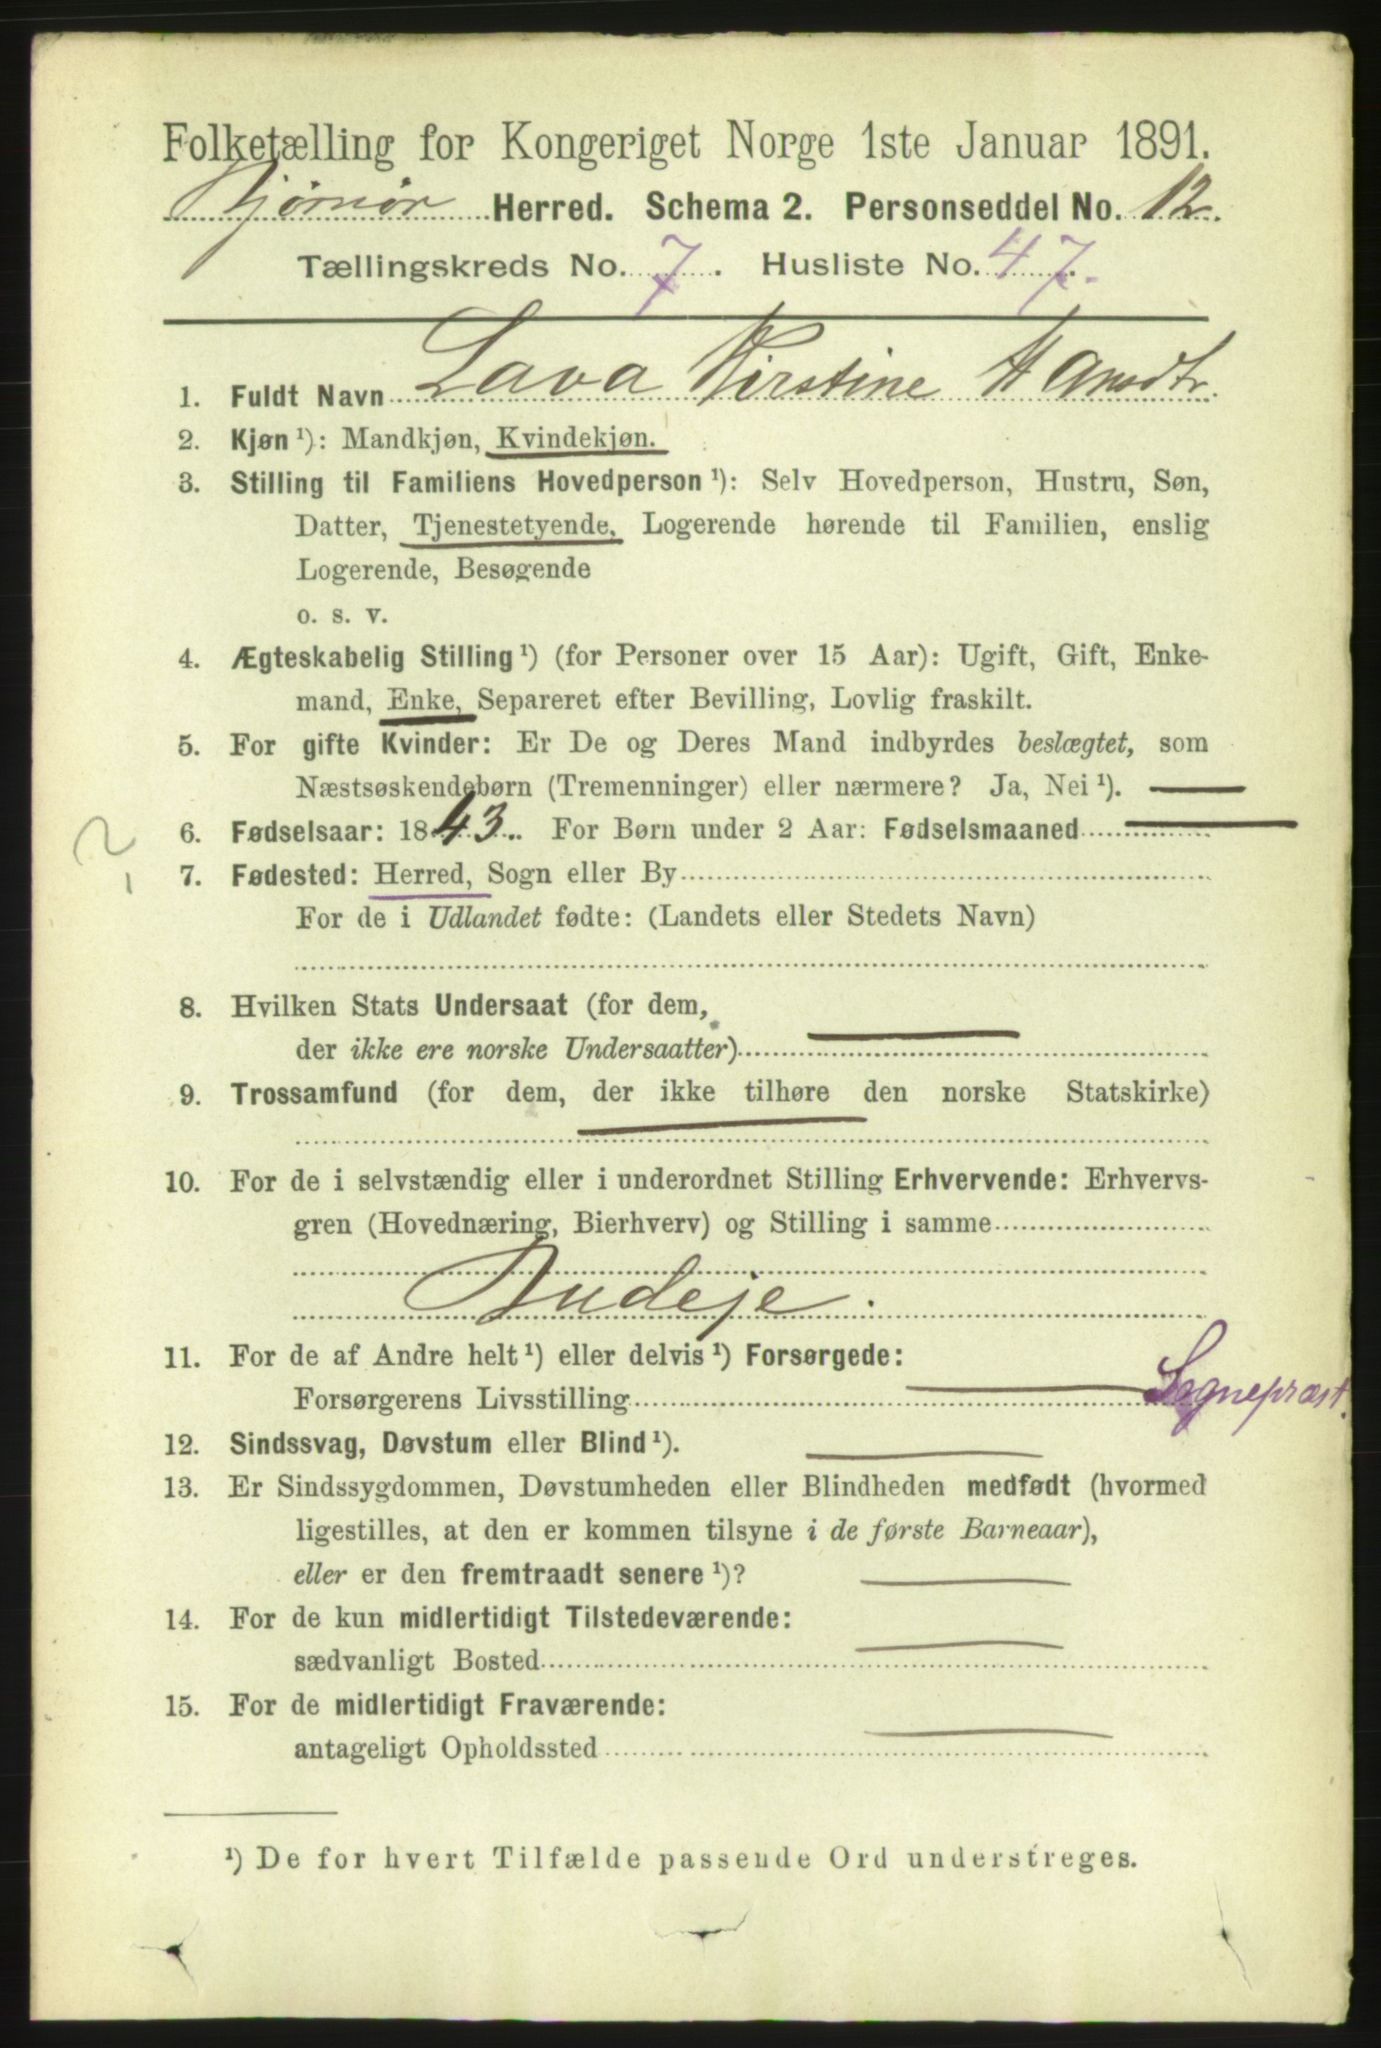 Folketælling for Kongeriget Norge 1ste Januar 1891.
Bjørnør Herred. Schema 2. Personseddel No. 12.
Tællingskreds No. 7. Husliste No. 47.
1. Fuldt Navn Lava Kirstine Hansdtr.
2. Kjøn ¹): Mandkjøn, Kvindekjøn.
3. Stilling til Familiens Hovedperson ¹): Selv Hovedperson, Hustru, Søn,
Datter, Tjenestetyende, Logerende hørende til Familien, enslig
Logerende, Besøgende
o. s. v.
4. Ægteskabelig Stilling ¹) (for Personer over 15 Aar): Ugift, Gift, Enke-
mand, Enke, Separeret efter Bevilling, Lovlig fraskilt.
5. For gifte Kvinder: Er De og Deres Mand indbyrdes beslægtet, som
Næstsøskendebørn (Tremenninger) eller nærmere? Ja, Nei ¹).
6. Fødselsaar: 1843. For Børn under 2 Aar: Fødselsmaaned
7. Fødested: Herred, Sogn eller By
For de i Udlandet fødte: (Landets eller Stedets Navn)
8. Hvilken Stats Undersaat (for dem,
der ikke ere norske Undersaatter)
9. Trossamfund (for dem, der ikke tilhøre den norske Statskirke)
10. For de i selvstændig eller i underordnet Stilling Erhvervende: Erhvervs-
gren (Hovednæring, Bierhverv) og Stilling i samme
Budeje.
11. For de af Andre helt ¹) eller delvis ¹) Forsørgede:
Forsørgerens Livsstilling Sognepræst.
12. Sindssvag, Døvstum eller Blind ¹).
13. Er Sindssygdommen, Døvstumheden eller Blindheden medfødt (hvormed
ligestilles, at den er kommen tilsyne i de første Barneaar),
eller er den fremtraadt senere ¹)?
14. For de kun midlertidigt Tilstedeværende:
sædvanligt Bosted
15. For de midlertidigt Fraværende:
antageligt Opholdssted
¹) De for hvert Tilfælde passende Ord understreges.